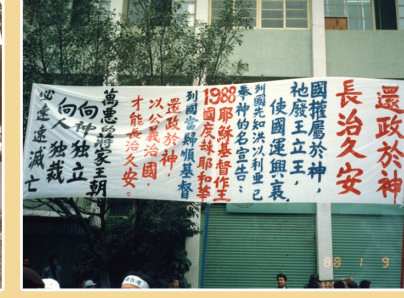 還政於神
長治久安
國權屬於神，
祂廢王立王，
使國運興衰。
列國先知洪以利亞已
奉神的名宣告：
1988耶穌基督作王
國度歸耶和華
列國當歸順基督
還政於神！
以公義治國，
才能長治久安。
萬惡的蔣家王朝
向神独立
向人独裁
必速速滅亡
88 1 9